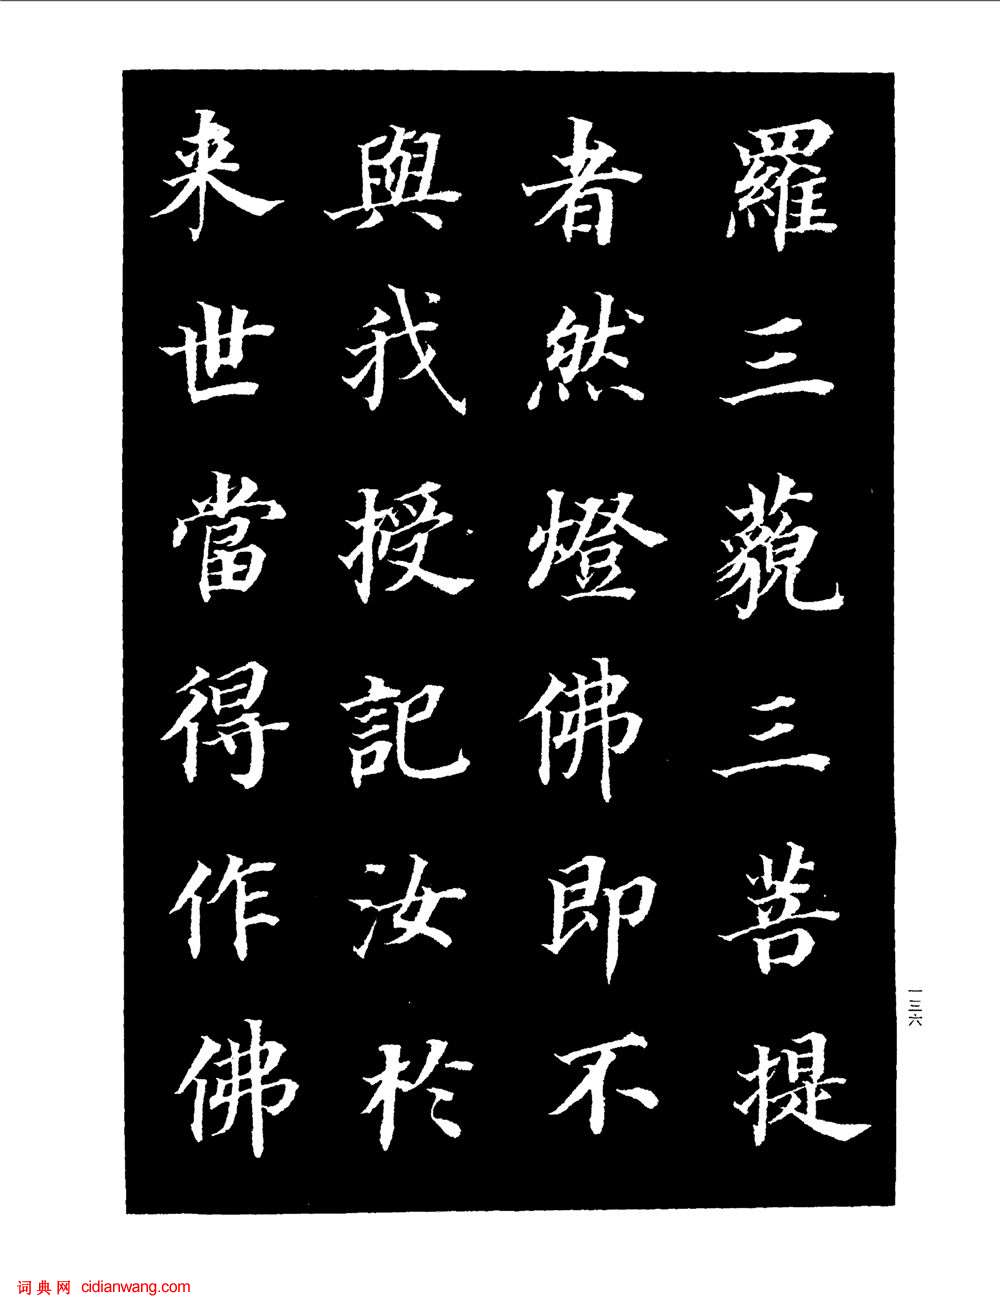 羅三藐三菩提
者然燈佛即不
與我授記汝於
来世當得作佛
一三六
词典网 cidianwang.com